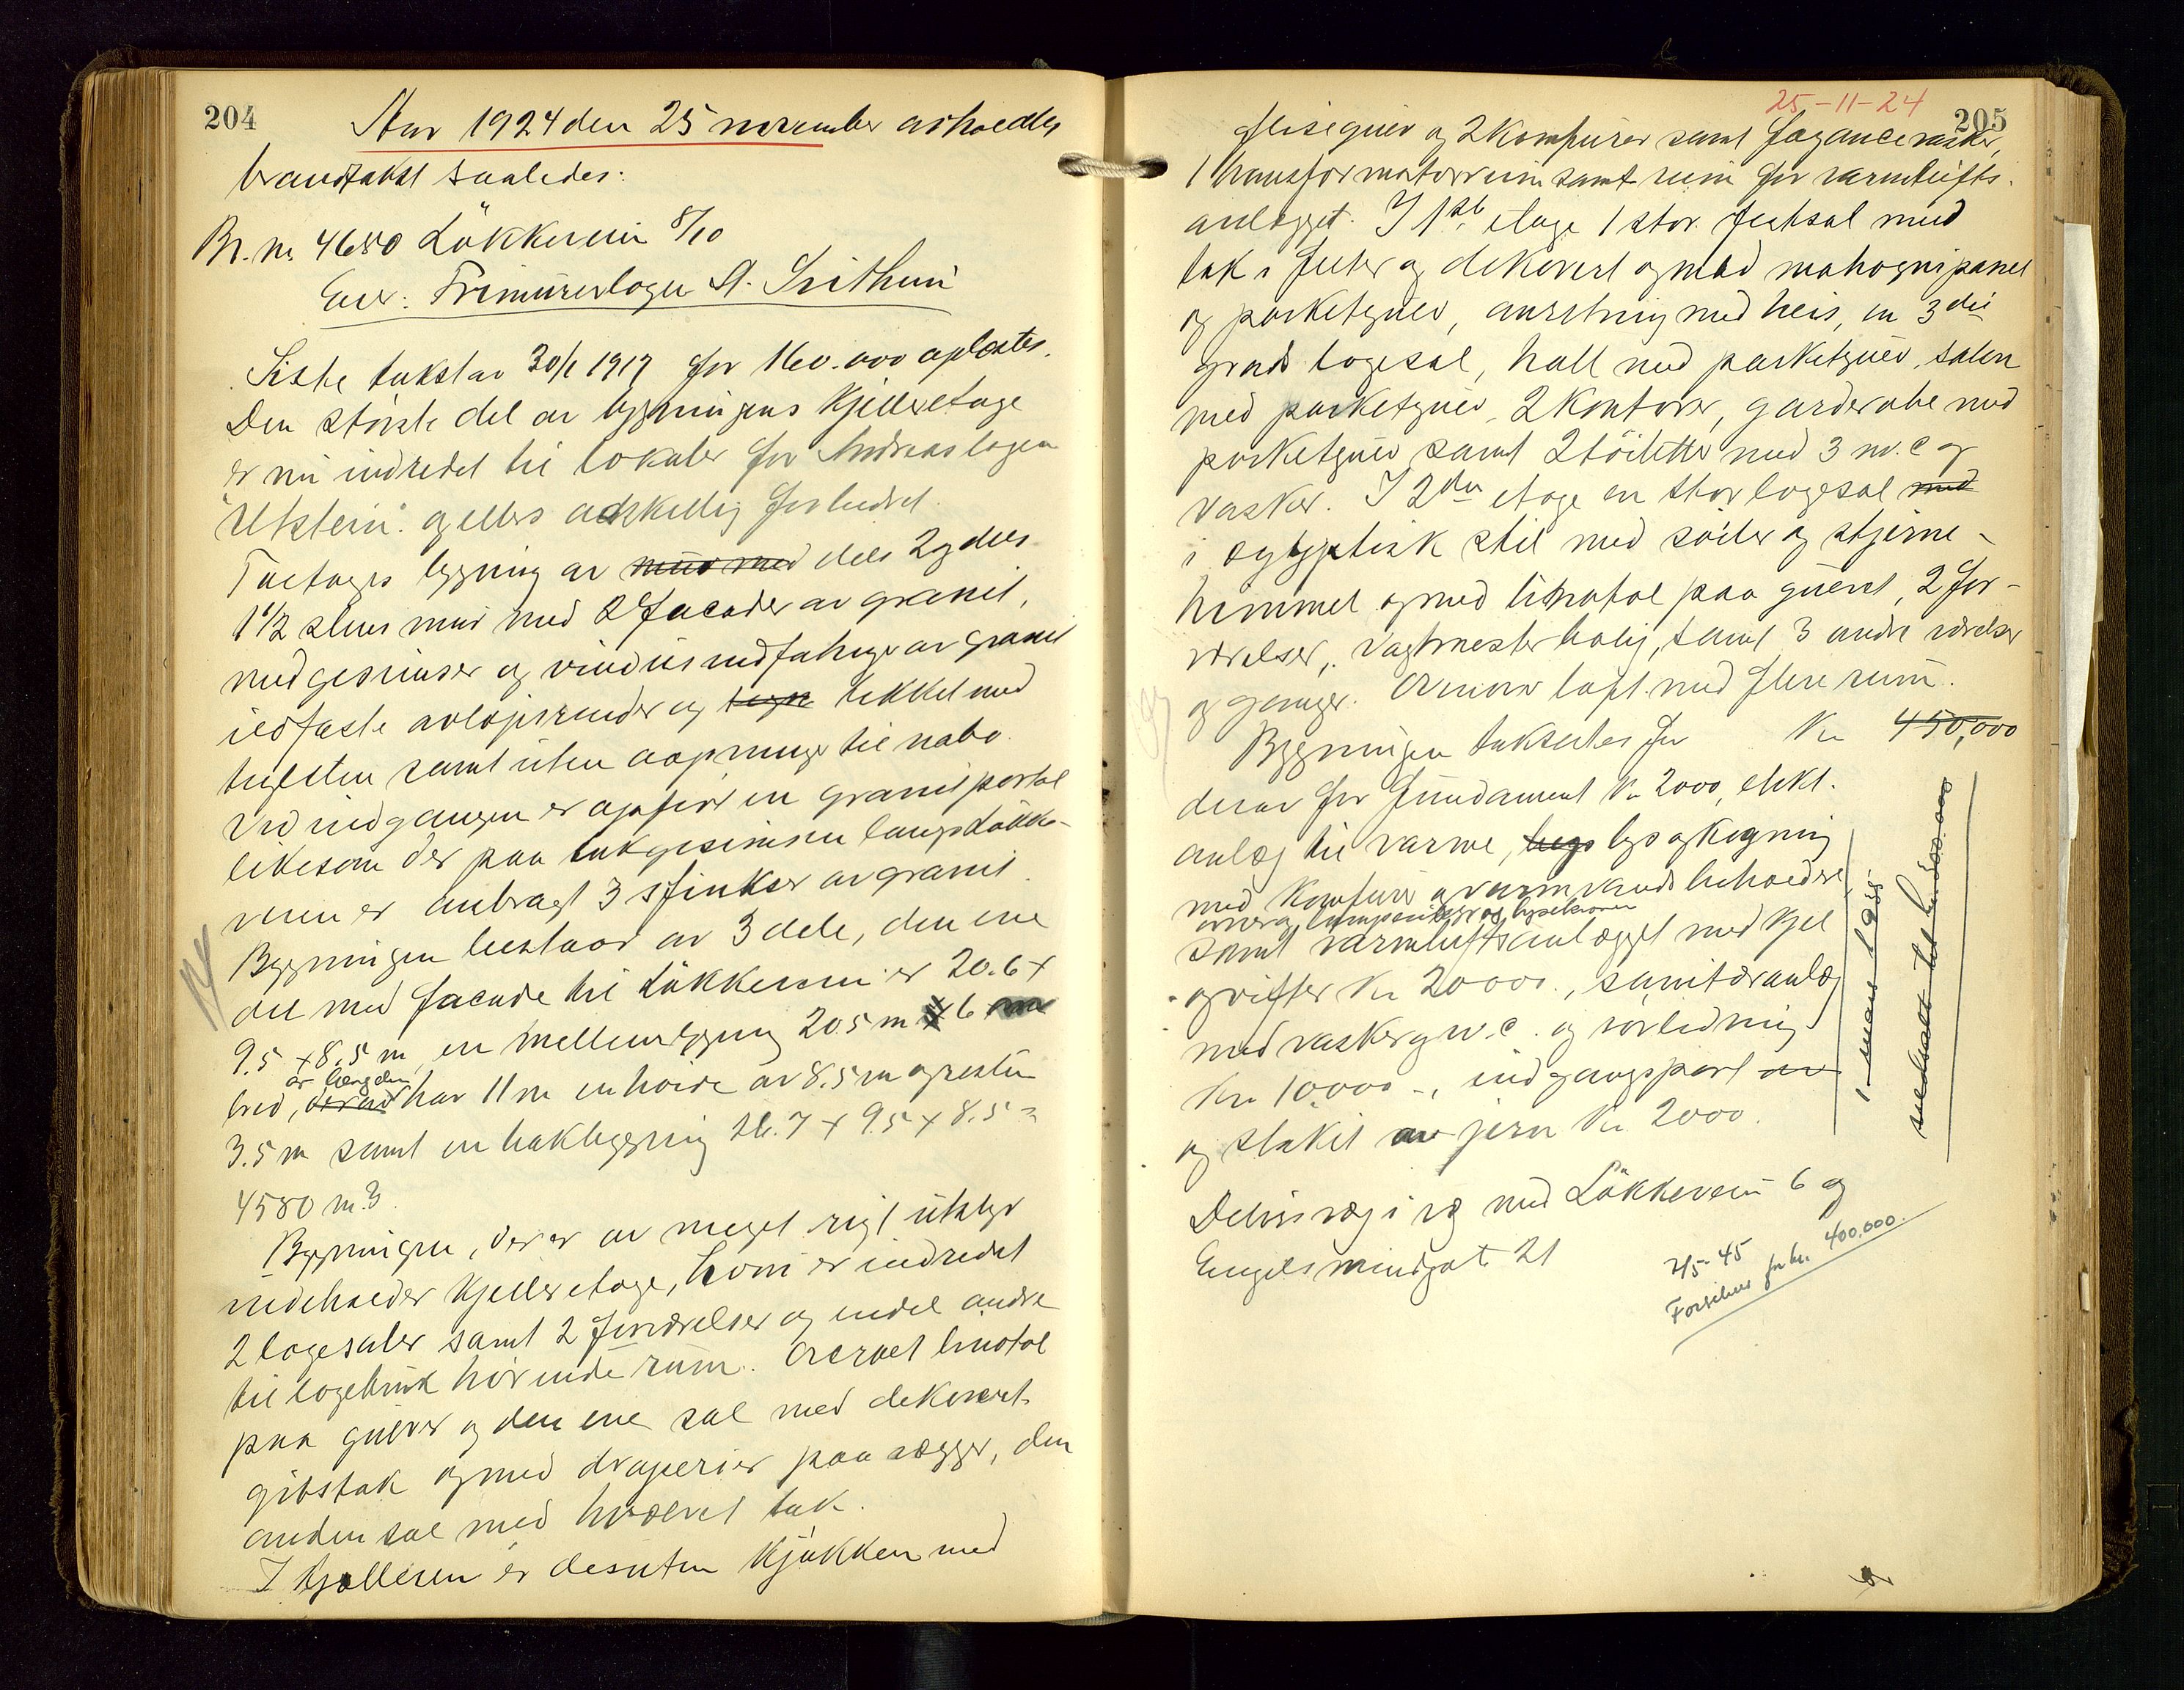 204
Aar 1924 den 25 november avholdtes
brandtakst saaledes:
Br. nr. 4680 Lökkeveien 8/10
Eier: Frimurerlogen St. Svithun
Siste takst av 30/1 1917 for 160.000 oplæstes.
Den störste del av bygningens Kjelleretage
er nu indredet til lokaler for Andreaslogen
"Utstein" og ellers adskillig forbedret.
Toetages bygning av mur med dels 2 og dels
1 1/2 stens mur med 2 facader av granit,
med gesimser og vindusindfatninger av granit
ildfaste avlöpsrender og tegn tækket med
teglsten samt uten aapninger til nabo.
Ved indgangen er opfört en granitportal
likesom der paa takgesimsen langs Lökke-
veien er anbragt 3 sfinkser av granit.
Bygningen bestaar av 3 dele, den ene
del med facade til Lökkeveien er 20.6 x
9.5 x 8.5 m, en mellembygning 20.5 m x 6 m
av længden
bred, derav har 11 m en höide av 8.5 m og resten
3.5 m samt en bakbygning 26.7 x 9.5 x 8.5 =
4580 m.3.
Bygningen, der er av meget rigt utstyr
indeholder Kjelleretage, hvori er indredet
2 logesaler samt 2 forværelser og endel andre
til logebruk hörende rum. Overalt linotol
paa gulver og den ene sal med dekorert
gibstak og med draperier paa vægger, den
anden sal med hvælvet tak.
I Kjælleren er desuten Kjökken med
25-11-24
205
flisegulv og 2 Komfurer samt fayancevasker,
1 transformatorrum samt rum for varmlufts-
anlægget. I 1ste etage 1 stor festsal med
tak i felter og dekorert og med mahognipanel
og parketgulv, anretning med heis, en 3die
grads logesal, hall med parketgulv, salon
med parketgulv, 2 Kontorer, garderobe med
parketgulv samt 2 toiletter med 3 w.c og
vasker. I 2den etage en stor logesal med
i ægyptisk stil med söiler og stjerne-
himmel og med linotol paa gulvet, 2 for-
værelser, vagtmesterbolig, samt 3 andre værelser
og ganger. Ovenover loft med flere rum.
Bygningen taksertes for Kr 450,000
derav for fundament Kr 2000, elekt.
anlæg til varme, lys og Kogning
med Komfur og varmtvandsbeholdere
ovner og lampeutstyr og lysekroner
samt varmluftsanlægget med Kjel
og vifter Kr 20000., sanitæranlæg
med vasker og w.c. og rörledning
Kr 10.000 -, indgangsport av
og stakit av jern Kr 2000.
1 mars 1955
nedsatt til kr. 300.000
Delinsvæg i væ med Lökkeveien 6 og
Engelsmindegate 21
2/5-45
Forsikres for kr. 400.000.